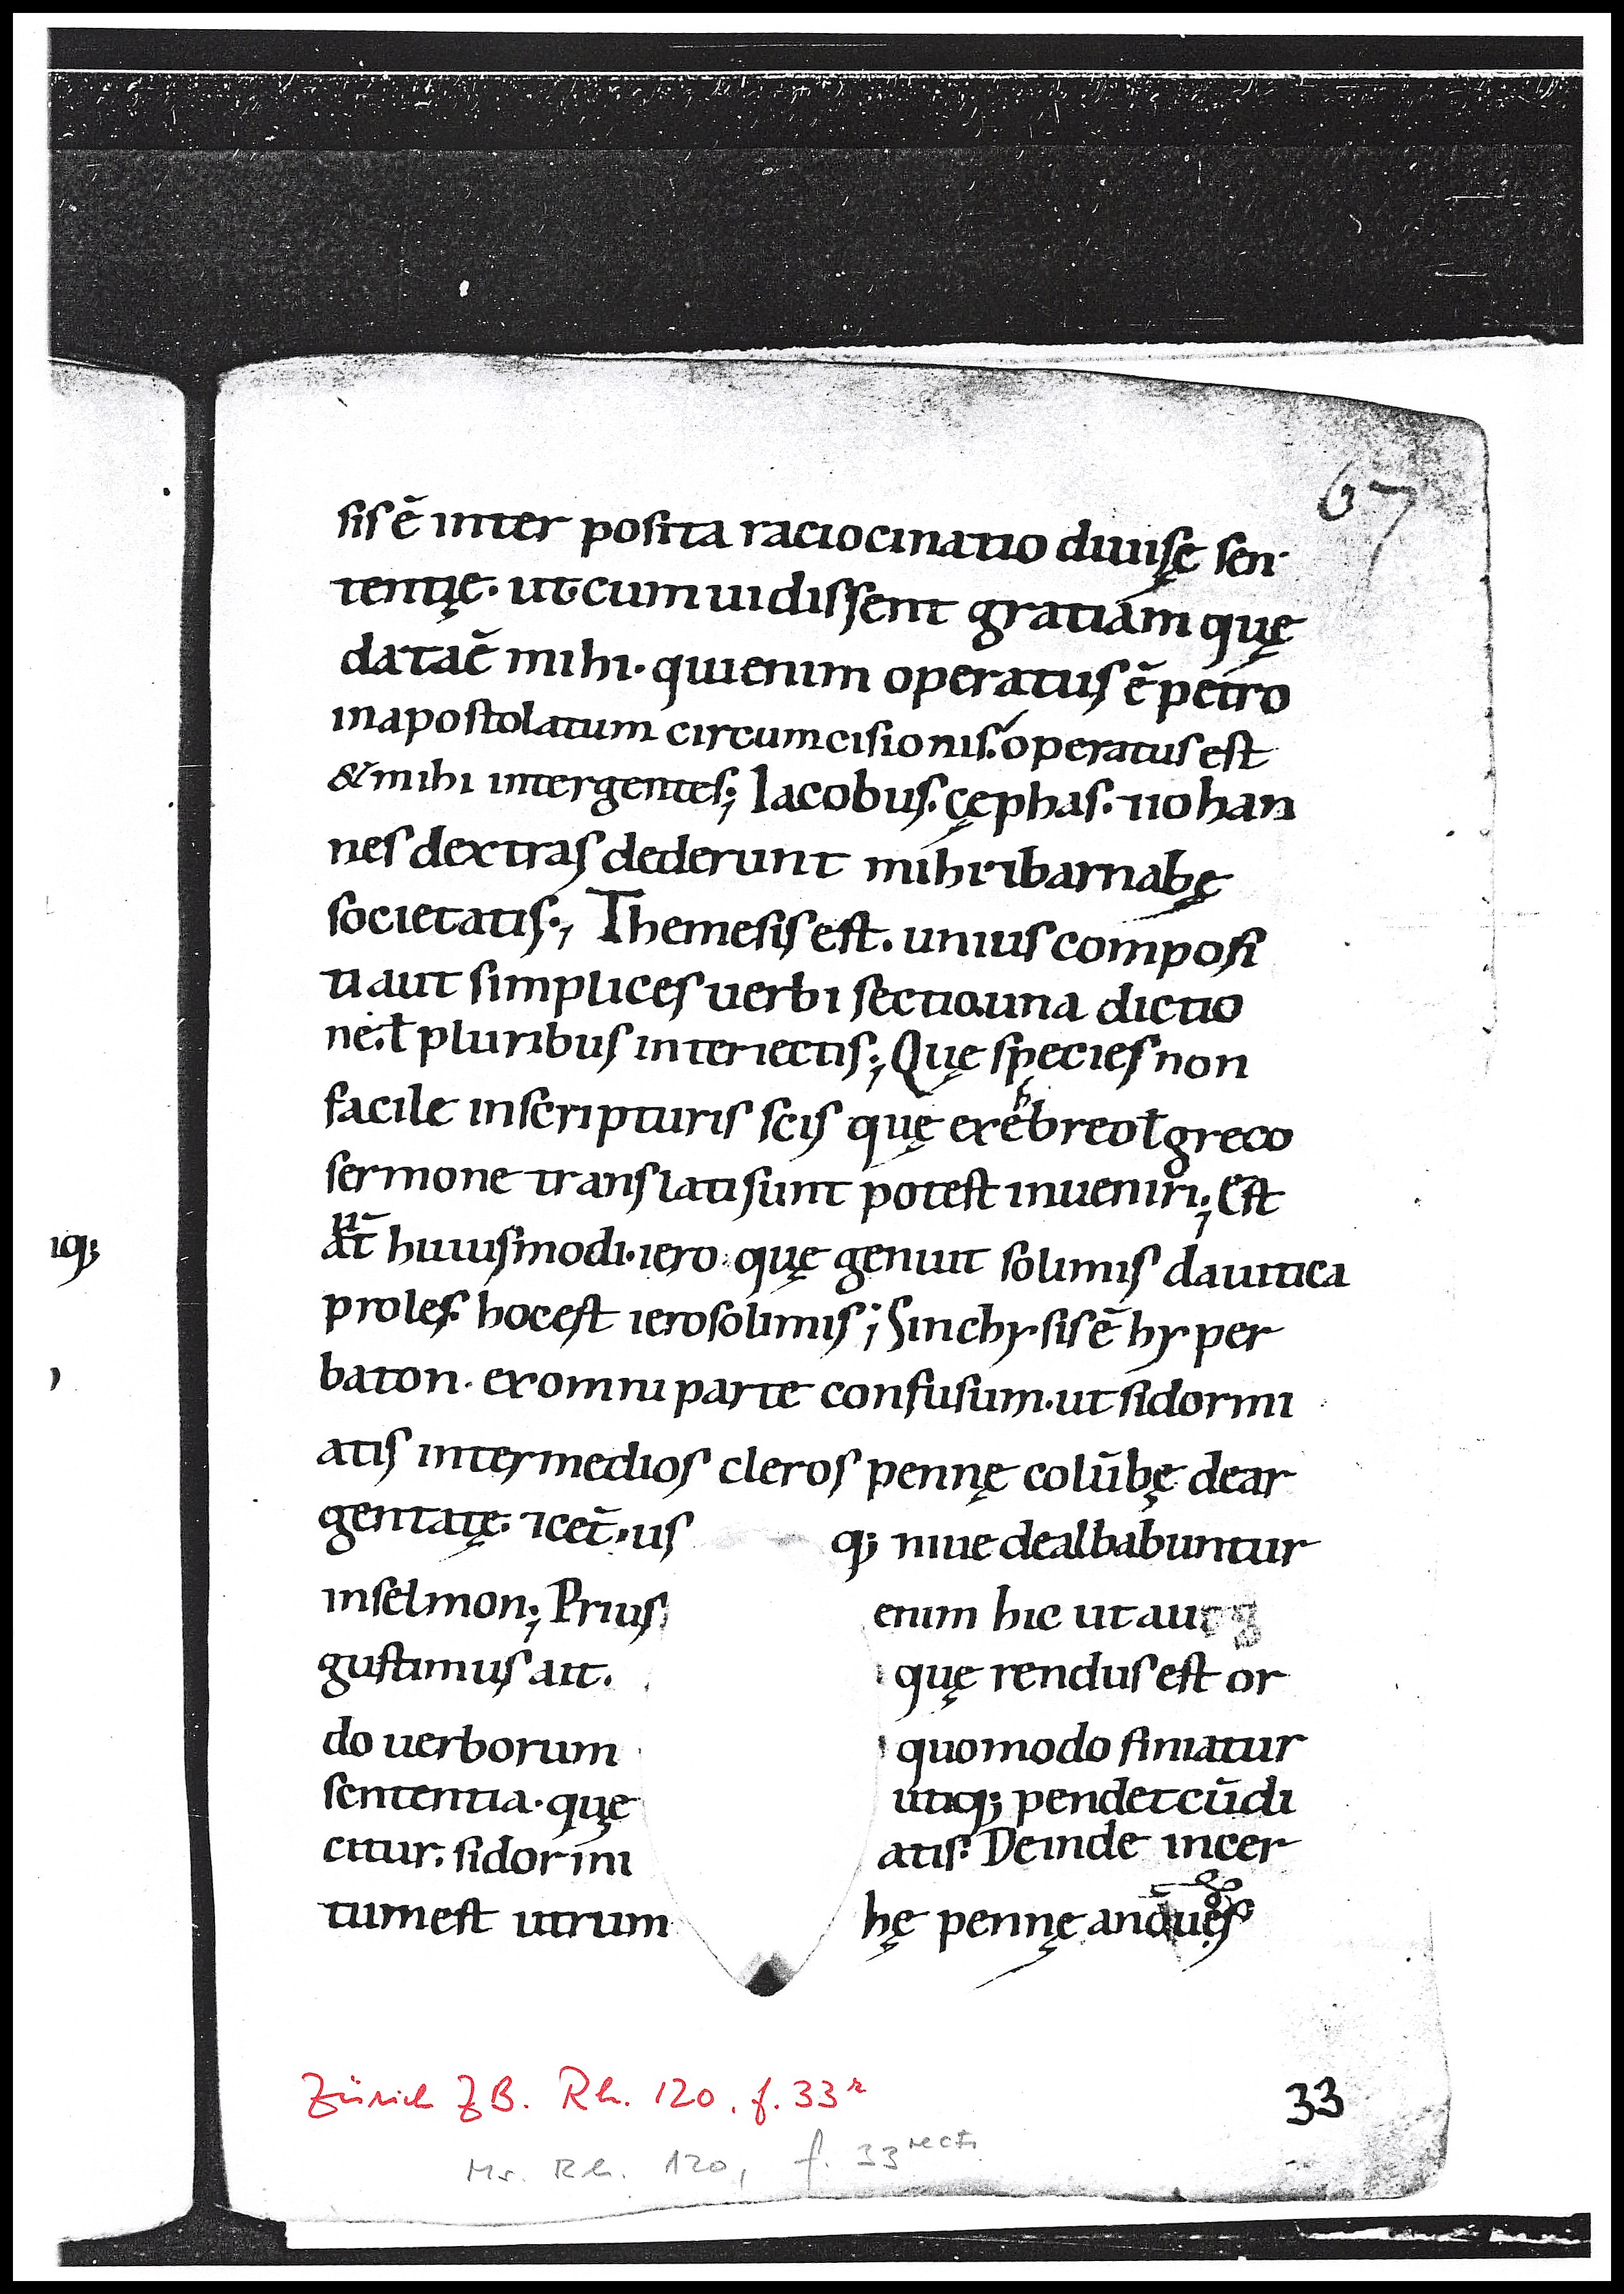 67
sis ē inter posita raciocinatio diuisę sen
tentię. ut cum uidissent gratiam quę
data ē mihi. qui enim operatus ē petro
in apostolatum circumcisionis. operatus est
& mihi inter gentes; Iacobus. cęphas. ⁊ iohan
nes dextras dederunt mihi ⁊ barnabę
societatis; Themesis est. unius composi
ti aut simplices uerbi sectio. una dictio
nē. ł pluribus interiectis; Quę species non
facile in scripturis scis quę ex ebreo ł greco
h
sermone translati sunt potest inueniri; Est
at̄ huiusmodi. iero. quę genuit solimis dauitica
proles. hoc est ierosolimis; Sinchysis ē hyper
baton. ex omni parte confusum. ut si dormi
atis inter medios cleros pennę colūbę dear
gentatę. ⁊ cet̄. us q; niue dealbabuntur
iq;
in selmon; Prius enim hic ut au
gustimus ait. quęrendus est or
do uerborum quomodo finiatur
sententia. quę utiq; pendet cū di
citur. si dormi atis. Deinde incer
tum est utrum hę pennę an
Zürich ZB. Rh. 120, f. 33r
33
Ms. Rh. 120, f. 33 recto